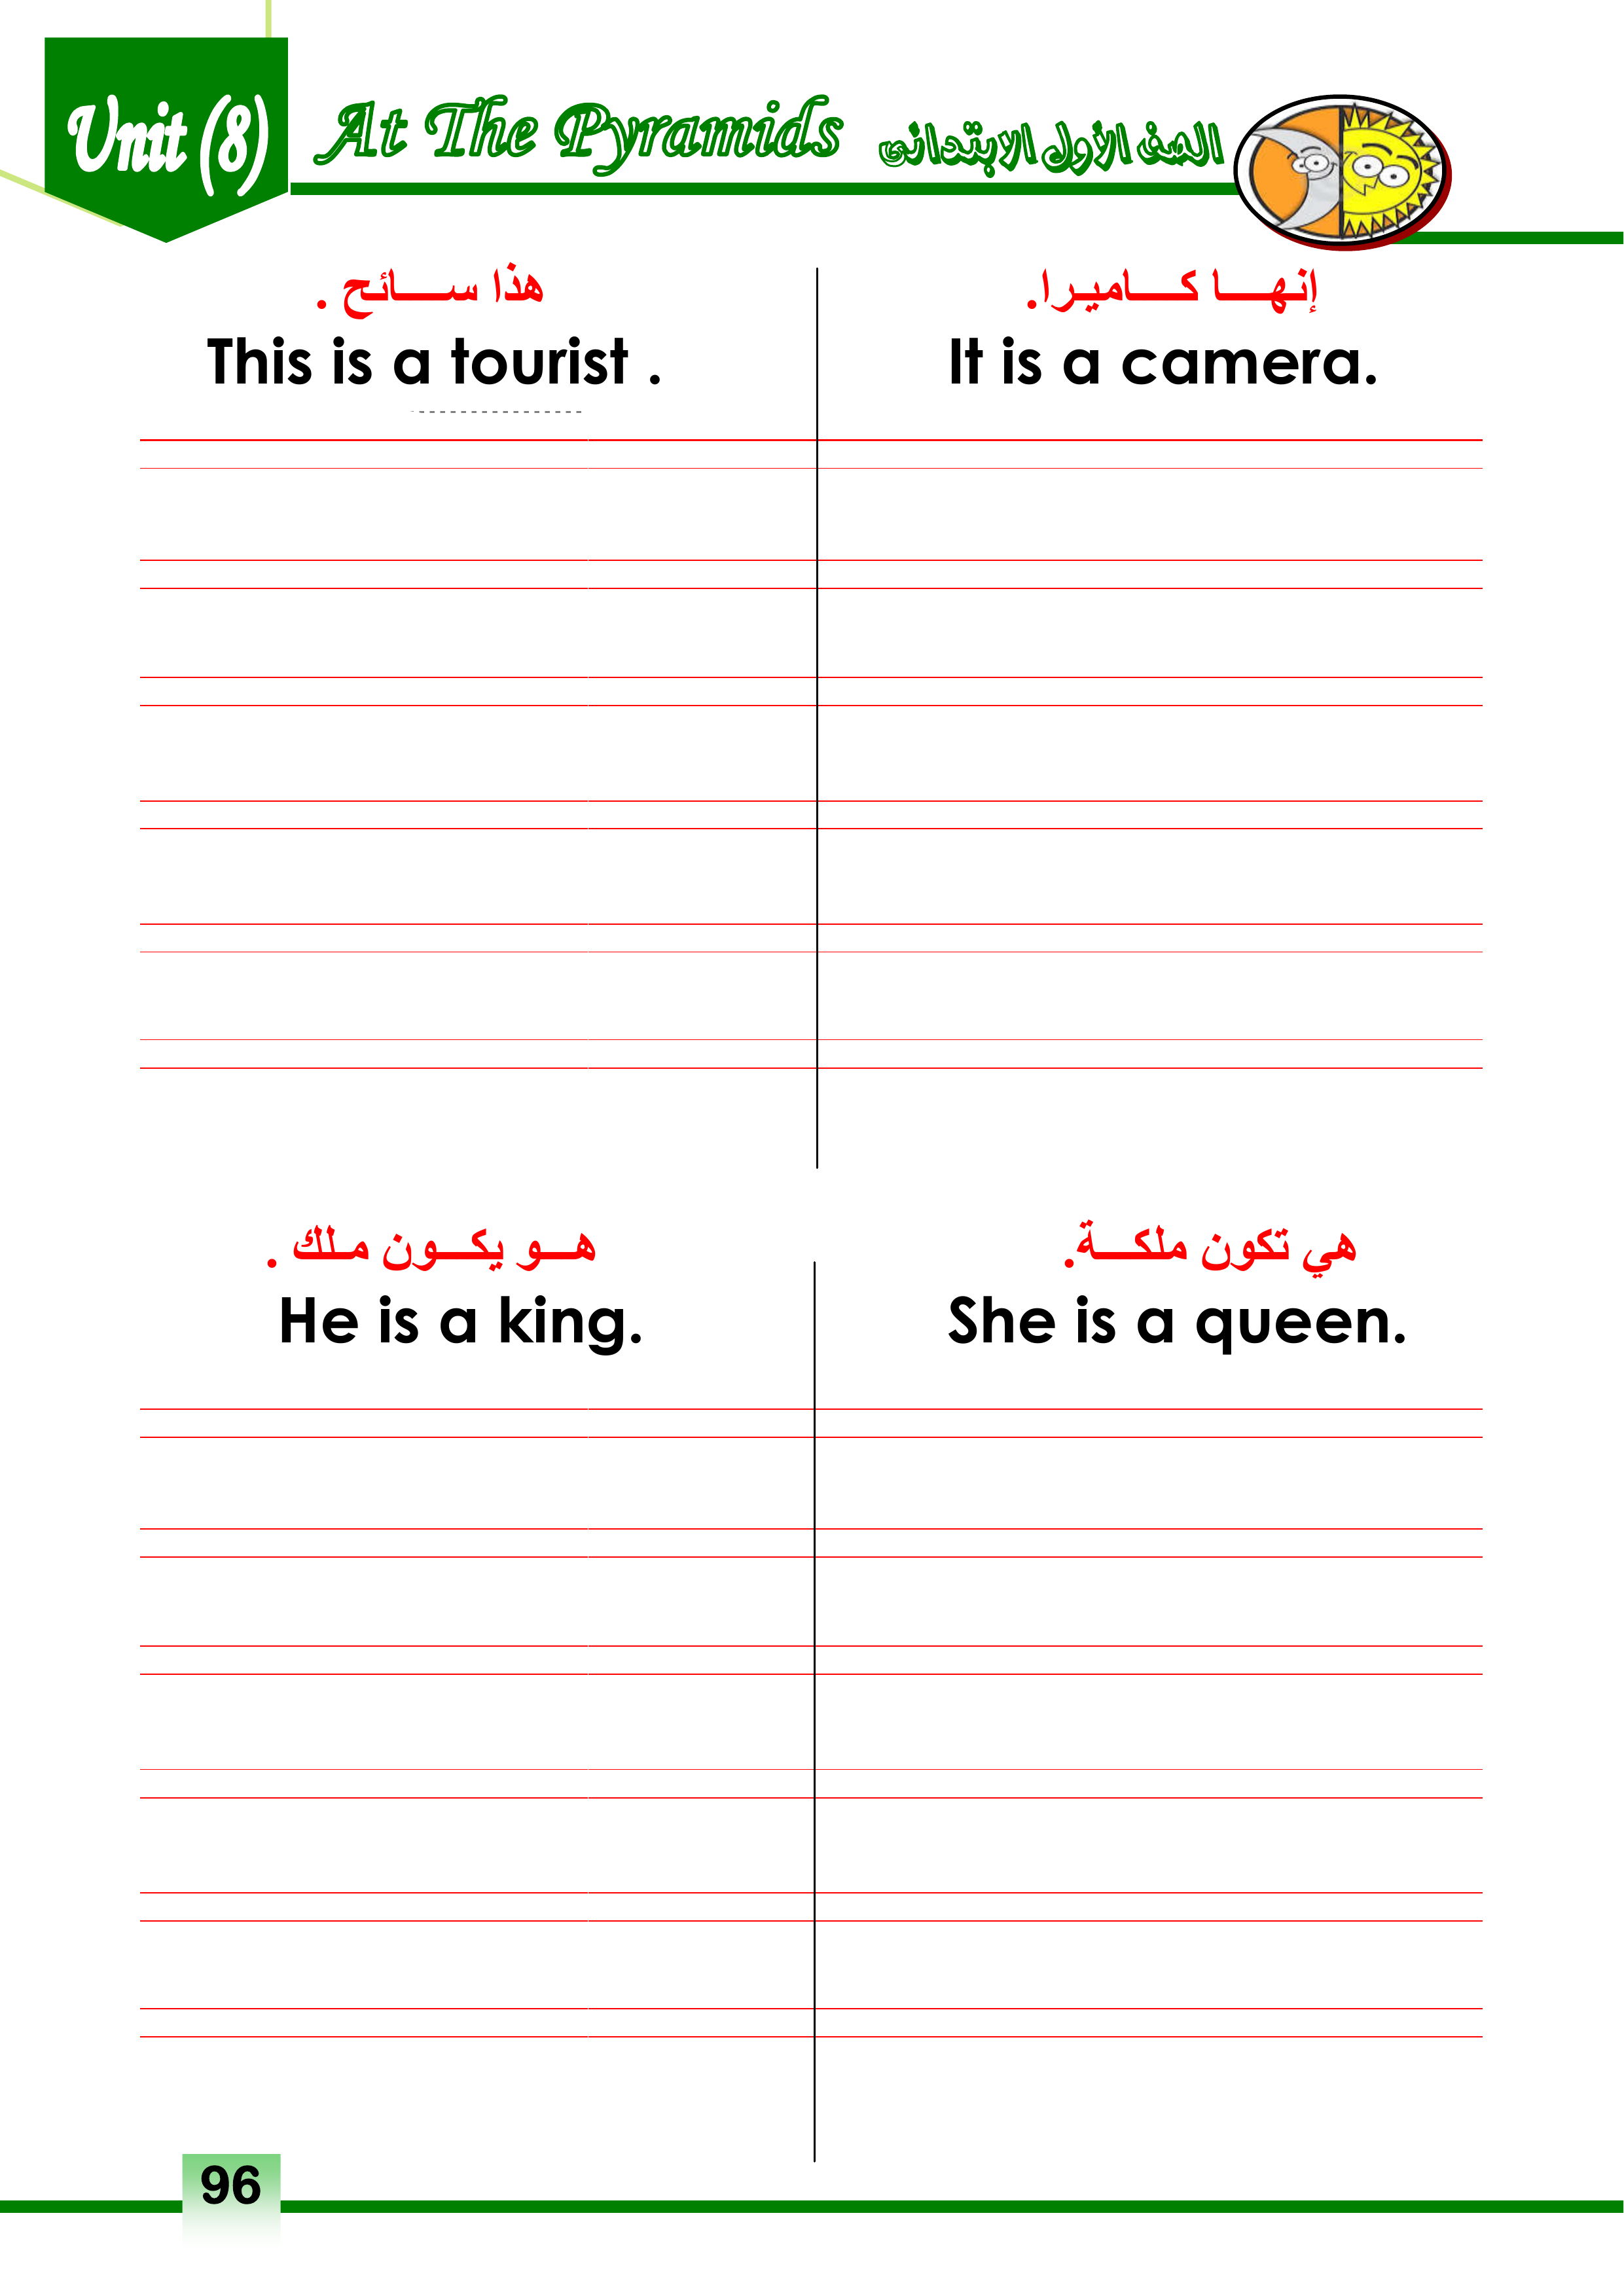 Unit (8)
At The Pyramids
الصف الأول الابتدائى
هذا سائح .
This is a tourist .
إنها كاميرا.
It is a camera.
هو يكون ملك .
He is a king.
هي تكون ملكة.
She is a queen.
96